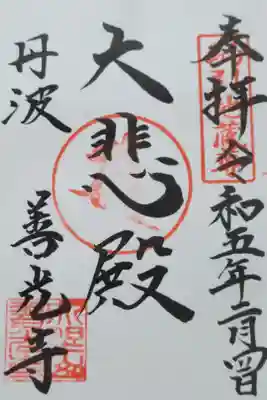 奉拝 令和五年二月四日
大悲殿
丹波 善光寺